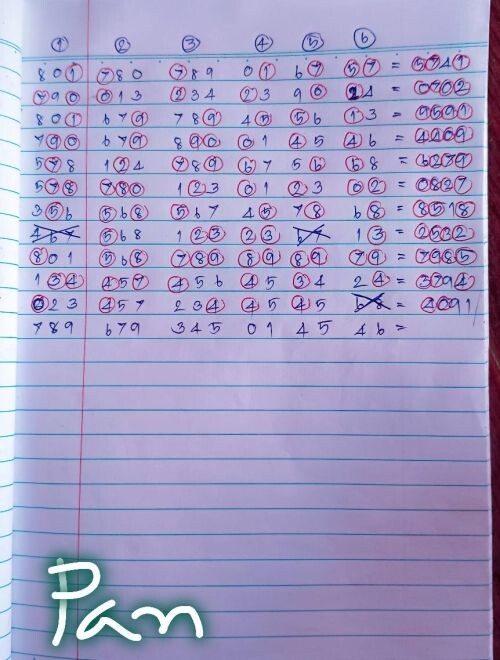 1 2 3 4 5 6
801 780 789 01 67 57 = 5741
790 013 234 23 90 24 = 0702
801 679 789 45 56 13 = 9591
790 679 890 01 45 46 = 4409
578 124 789 67 56 68 = 6279
578 780 123 01 23 02 = 0827
356 568 567 45 78 68 = 8518
467 568 123 23 67 13 = 2532
801 568 789 89 89 79 = 7985
134 457 456 45 34 24 = 3794
023 457 234 45 45 68 = 4091/
789 679 345 01 45 46 =
Pan